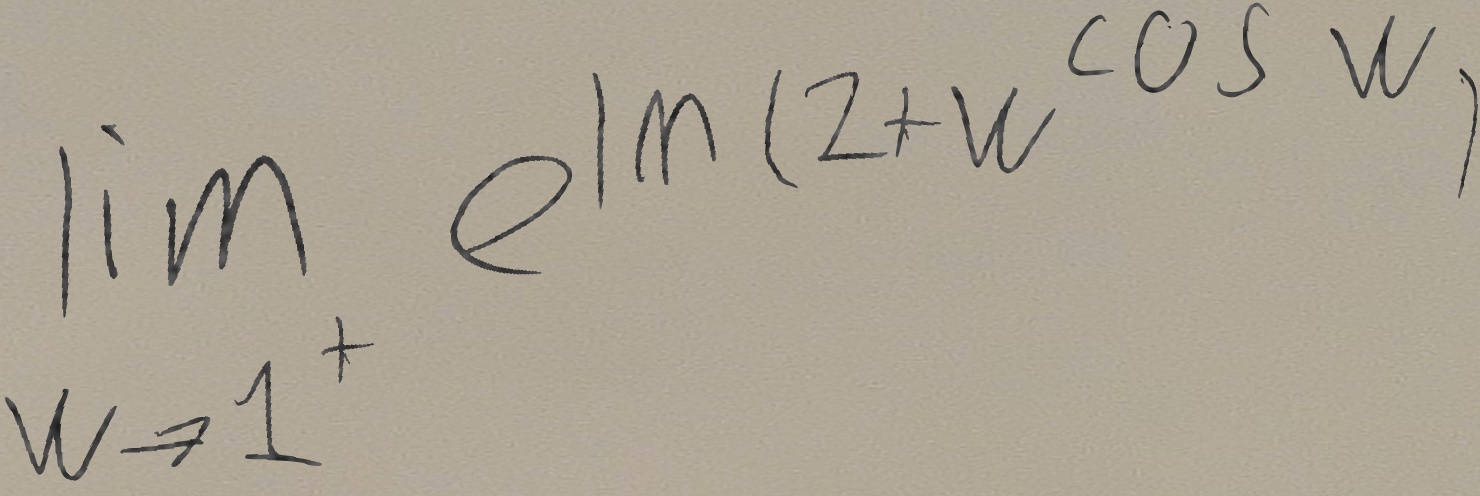 \lim_{w \to 1^+} e^{\ln(2+w^{\cos w})}